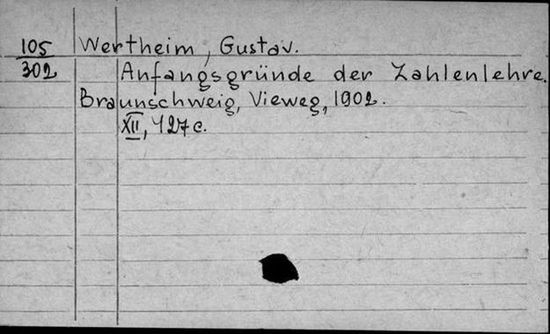 105 Wertheim, Gustav.
302 Anfangsgründe der Zahlenlehre.
Braunschweig, Vieweg, 1902.
XII, 427 c.